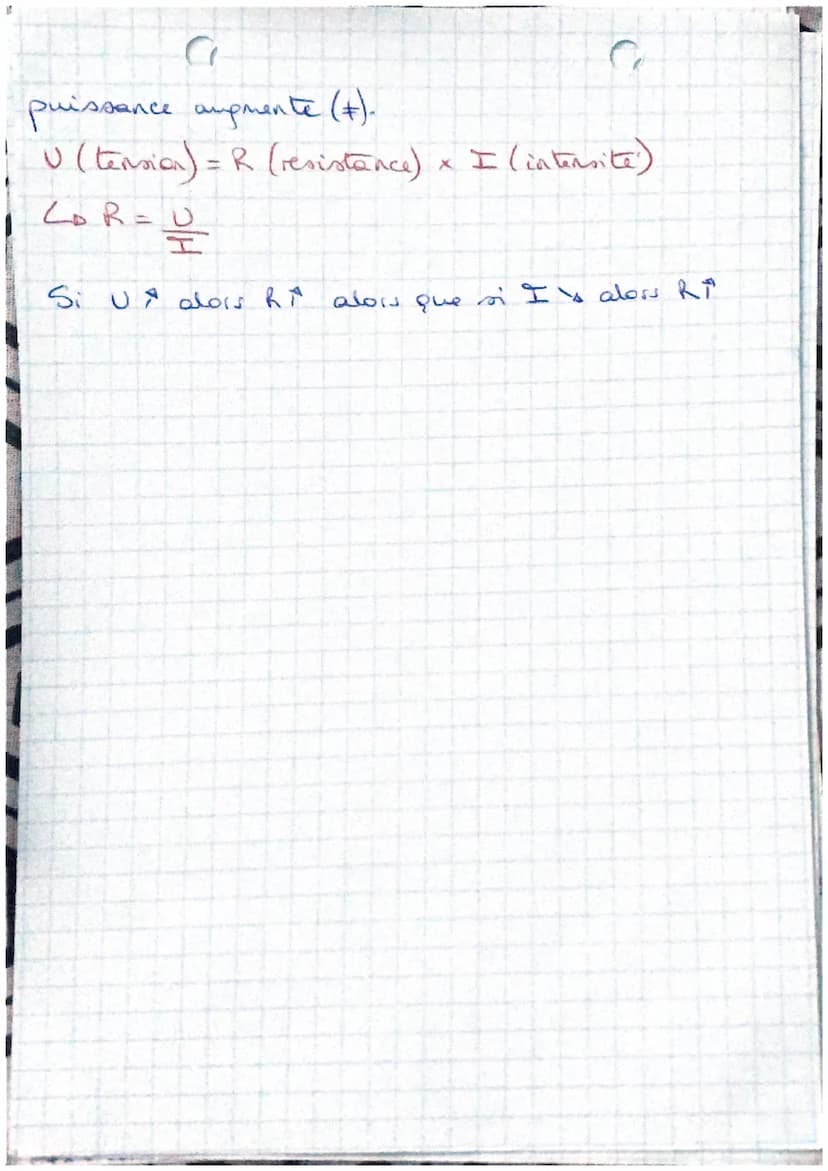 puissance augmente (≠).
U (tension) = R (resistance) x I (intensité)
↳ R = U
I
Si U ↗ alors R↑ alors que si I ↘ alors R↑